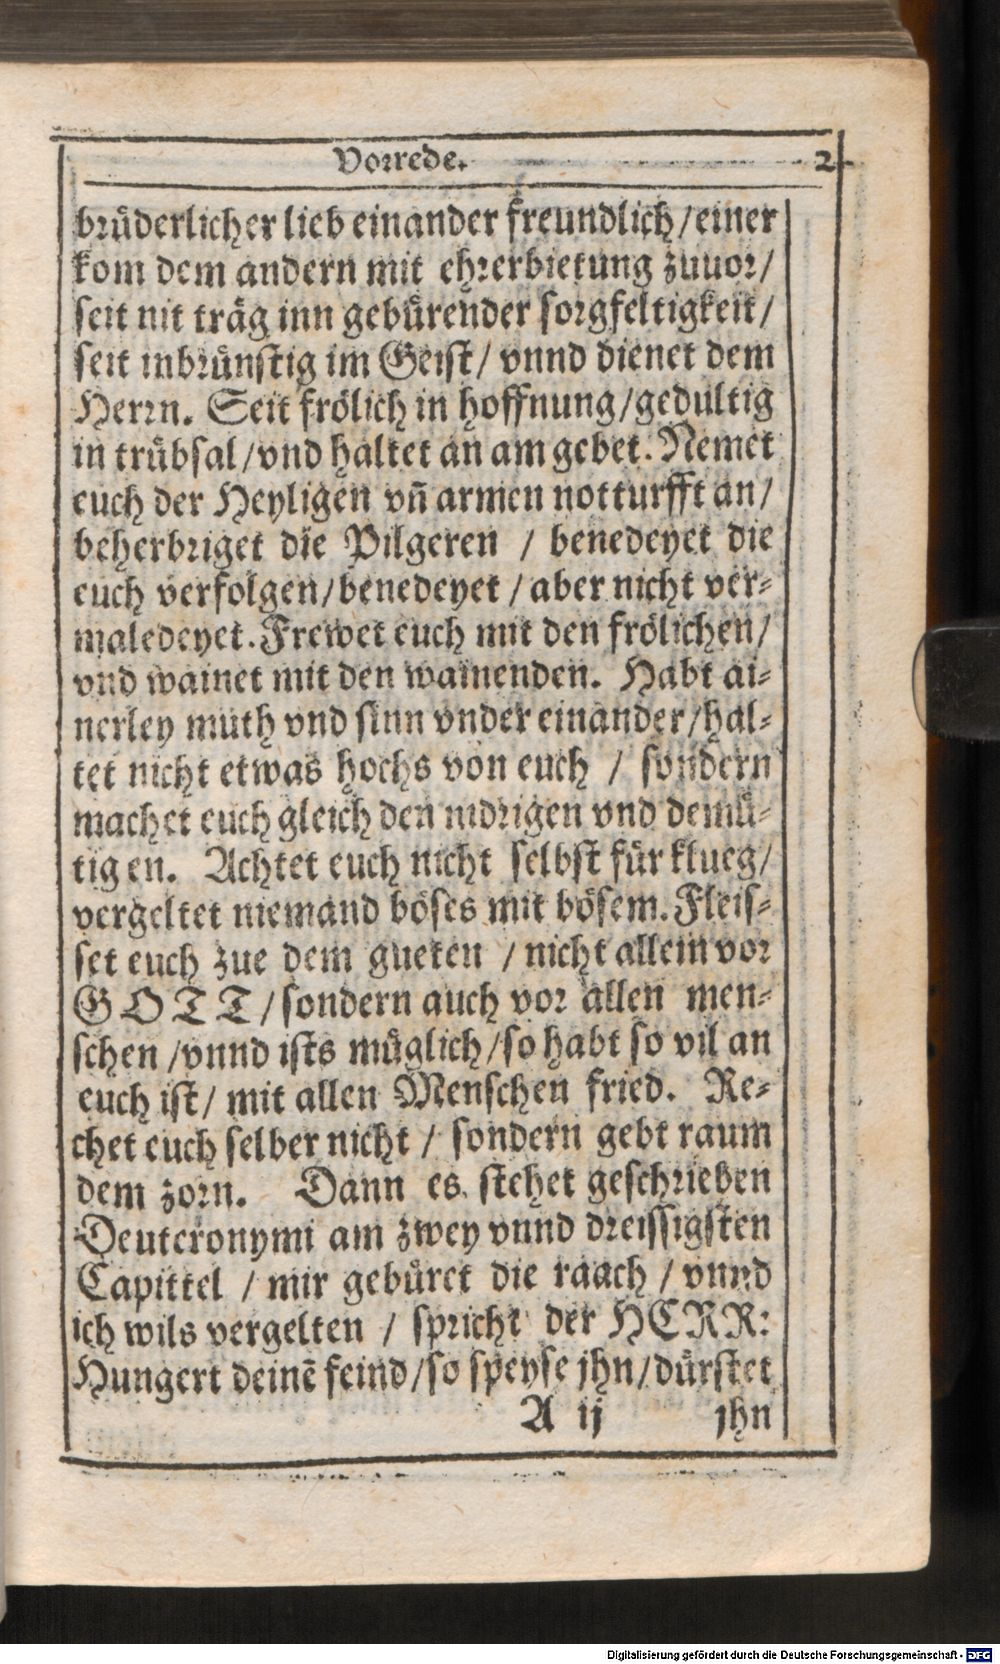 Vorrede. 2
brüderlicher lieb einander freundlich/einer
kom dem andern mit ehrerbietung zuuor/
seit nit träg inn gebürender sorgfeltigkeit/
seit inbrünstig im Geist/ vnnd dienet dem
Herrn. Seit frölich in hoffnung/gedultig
in trübsal/vnd haltet an am gebet. Nemet
euch der Heyligen vn̄ armen notturfft an/
beherbriget die Pilgeren / benedeyet die
euch verfolgen/benedeyet / aber nicht ver-
maledeyet. Frewet euch mit den frölichen/
vnd wainet mit den wainenden. Habt ai-
nerley muth vnd sinn vnder einander/hal-
tet nicht etwas hochs von euch / sondern
machet euch gleich den nidrigen vnd demü-
tigen. Achtet euch nicht selbst für klueg/
vergeltet niemand böses mit bösem. Fleis-
set euch zue dem gueten / nicht allein vor
GOTT/sondern auch vor allen men-
schen /vnnd ists müglich/so habt so vil an
euch ist/ mit allen Menschen fried. Re-
chet euch selber nicht / sondern gebt raum
dem zorn. Dann es stehet geschrieben
Deuteronymi am zwey vnnd dreissigsten
Capittel / mir gebüret die raach / vnnd
ich wils vergelten / spricht der HERR:
Hungert deinē feind/so speyse jhn/dürstet
A ij jhn
Digitalisierung gefördert durch die Deutsche Forschungsgemeinschaft - DFG